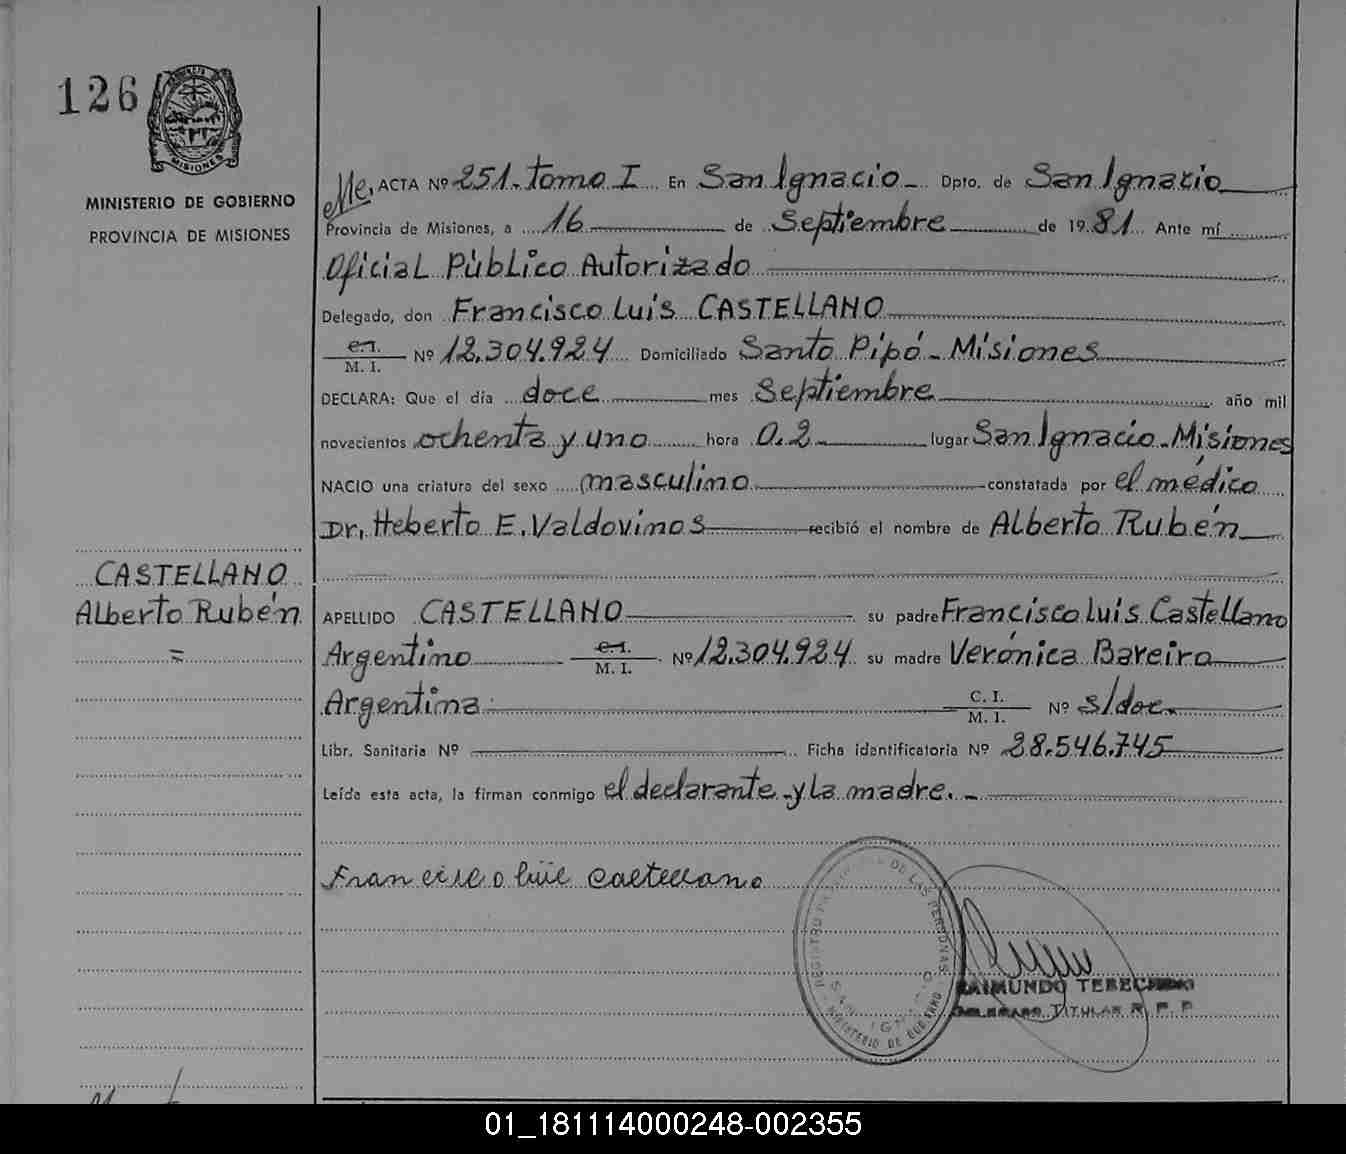 126
MISIONES
MINISTERIO DE GOBIERNO
PROVINCIA DE MISIONES
ACTA Nº 251. tomo I En San Ignacio Dpto. de San Ignacio
Provincia de Misiones, a 16 de Septiembre de 1981 Ante mí
Oficial Público Autorizado
Delegado, don Francisco Luis CASTELLANO
C.I.
M. I. Nº 12.304.924 Domiciliado Santo Pipó - Misiones
DECLARA: Que el día doce mes Septiembre año mil
novecientos ochenta y uno hora 0.2 lugar San Ignacio - Misiones
NACIO una criatura del sexo masculino constatada por el médico
Dr. Heberto E. Valdovinos recibió el nombre de Alberto Rubén
CASTELLANO
Alberto Rubén
=
APELLIDO CASTELLANO su padre Francisco Luis Castellano
Argentino C.I.
M. I. Nº 12.304.924 su madre Verónica Bareiro
Argentina C. I.
M. I. Nº s/doc.
Libr. Sanitaria Nº Ficha identificatoria Nº 28.546.745
Leída esta acta, la firman conmigo el declarante y la madre. -
Francisco Luis Castellano
REGISTRO DE LAS PERSONAS
SAN IGNACIO
MINISTERIO DE GOBIERNO
RAIMUNDO
DELEGADO TITULAR R. P. P.
01_181114000248-002355